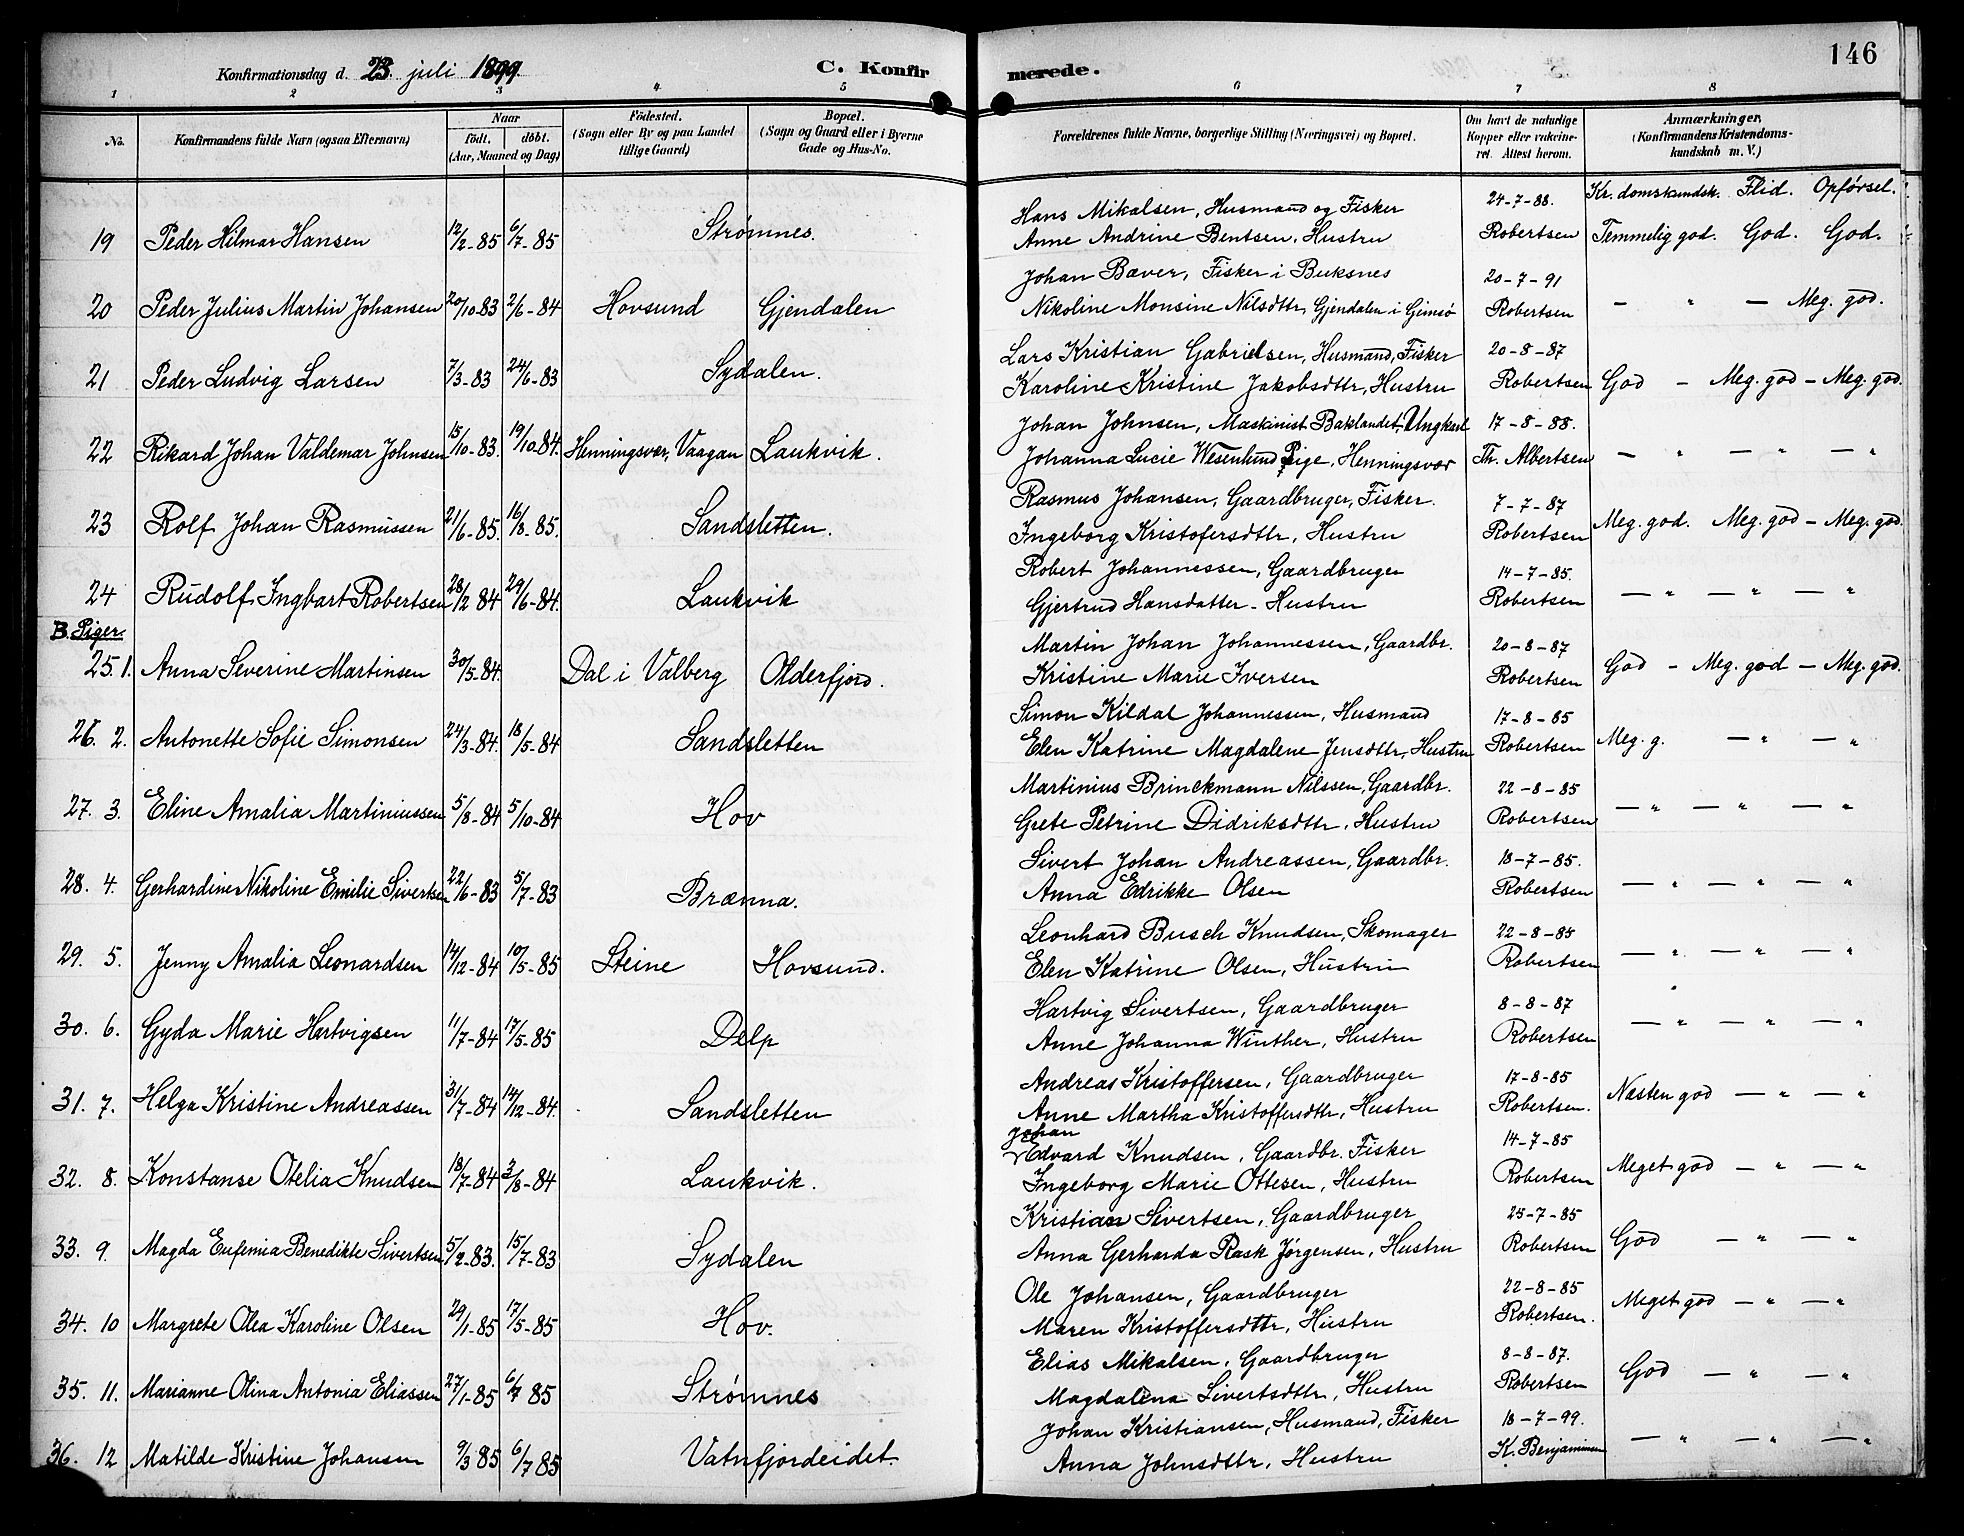 146
Konfirmationsdag d. 23. juli 1899.
C. Konfirmerede.
1 2 3 4 5 6 7 8
No.
Konfirmandens fulde Navn (ogsaa Efternavn)
Naar
födt. döbt.
(Aar, Maaned og Dag)
Födested.
(Sogn eller By og paa Landet
tillige Gaard)
Bopæl.
(Sogn og Gaard eller i Byerne
Gade og Hus-No.
Forældrenes fulde Navne, borgerlige Stilling (Næringsvei) og Bopæl.
Om havt de naturlige
Kopper eller vaccine-
ret. Attest herom.
Anmærkninger.
(Konfirmandens Kristendoms-
kundskab m. V.)
Kr.domskundsk. Flid. Opførsel.
Hans Mikalsen, Husmand og Fisker 24-7-88.
19 Peder Hilmar Hansen 12/2-85 6/7-85 Strømnes. Anne Andrine Bentsen, Hustru Robertsen Temmelig god. God. God.
Johan Bæver, Fisker i Buksnes 20-7-91
20 Peder Julius Martin Johansen 20/10-83 2/6-84 Hovsund Gjendalen Nikoline Monsine Nilsdttr Gjendalen i Gimsø Robertsen — " — Meg. god.
Lars Kristian Gabrielsen, Husmand, Fisker 20-8-87
21 Peder Ludvig Larsen 7/3-83 24/6-83 Sydalen. Karoline Kristine Jakobsdttr, Hustru Robertsen God - Meg. god - Meg. god.
Johan Johnsen, Maskinist Baklandet, Ungkarl 17-8-88.
22 Rikard Johan Valdemar Johnsen 15/10-83. 19/10-84. Henningsvær, Vaagan Laukvik. Johanna Lucie Wesenlund Pige, Henningsvær Th. Albertsen — " — " — "
Rasmus Johansen, Gaardbruger, Fisker. 7-7-87
23 Rolf Johan Rasmussen 21/6-85. 16/8-85. Sandsletten. Ingeborg Kristofersdttr, Hustru Robertsen Meg. god. Meg. god - Meg. god.
Robert Johannessen, Gaardbruger 14-7-85.
24 Rudolf Ingbart Robertsen 28/2 84 29/6-84. Laukvik Gjertrud Hansdatter - Hustru Robertsen — " — " — "
B. Piger.
Martin Johan Johannessen, Gaardbr. 20-8-87
25. 1. Anna Severine Martinsen 30/5-84. Dal i Valberg Olderfjord. Kristine Marie Iversen Robertsen God - Meg. god - Meg. god.
Simon Kildal Johannessen, Husmand 17-8-85
26. 2. Antonette Sofie Simonsen 24/3-84. 18/5-84 Sandsletten Elen Katrine Magdalene Jensdttr, Hustru Robertsen Meg. g. — " — "
Martinius Brinckmann Nilssen, Gaardbr. 22-8-85
27. 3. Eline Amalia Martiniussen 5/8-84 5/10-84 Hov Grete Petrine Didriksdttr, Hustru Robertsen — " — " — "
Sivert Johan Andreassen, Gaardbr. 18-7-85.
28. 4. Gerhardine Nikoline Emilie Sivertsen 22/6-83 5/7-83 Brænna. Anna Edrikke Olsen Robertsen — " — " — "
Leonhard Busch Knudsen, Skomager 22-8-85
29. 5. Jenny Amalia Leonardsen 14/12-84 10/5-85 Steine Hovsund. Elen Katrine Olsen, Hustru Robertsen — " — " — "
Hartvig Sivertsen, Gaardbruger 8-8-87
30. 6. Gyda Marie Hartvigsen 11/7-84 17/5-85 Delp Anne Johanna Winther, Hustru Robertsen — " — " — "
Andreas Kristoffersen, Gaardbruger 17-8-85
31. 7. Helga Kristine Andreassen 31/7-84 14/12-84. Sandsletten Anne Martha Kristoffersdttr, Hustru Robertsen. Næsten god — " — "
Johan
Edvard Knudsen, Gaardbr. Fisker 14-7-85
32. 8. Konstanse Otelia Knudsen 18/7-84 3/8-84 Laukvik. Ingeborg Marie Ottesen, Hustru Robertsen Meget god — " — "
Kristian Sivertsen, Gaardbruger 25-7-85
33. 9. Magda Eufemia Benedikte Sivertsen 5/2-83. 15/7-83 Sydalen Anna Gerharda Rask Jørgensen, Hustru Robertsen God — " — "
Ole Johansen, Gaardbruger 22-8-85
34. 10 Margrete Olea Karoline Olsen 29/1-85 17/5-85 Hov. Maren Kristoffersdttr, Hustru Robertsen. Meget god — " — "
Elias Mikalsen, Gaardbruger 8-8-87.
35. 11. Marianne Olina Antonia Eliassen 27/1-85 6/7 85 Strømnes Magdalena Sivertsdttr, Hustru Robertsen God — " — "
Johan Kristiansen, Husmand, Fisker 18-7-99.
36. 12 Matilde Kristine Johansen 9/3 85 6/7 85 Vatnfjordeidet. Anna Johnsdttr, Hustru K. Benjaminsen — " — " — "